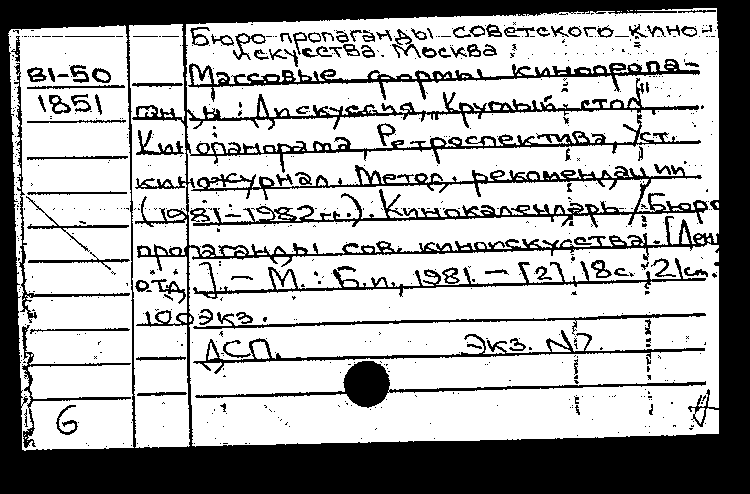 Бюро пропаганды советского кино-
искусства. Москва
В1-50 Массовые формы кинопропа-
1851 ганды: Дискуссия, „Круглый стол",
Кинопанорама, Ретроспектива, Уст.
киножурнал. Метод. рекомендации
(1981-1982гг.). Кинокалендарь / Бюро
пропаганды сов. киноискусства. [Лен
отд.]. - М. : Б.и., 1981. - [2], 18с. 21см.
100экз.
ДСП. Экз. №
6